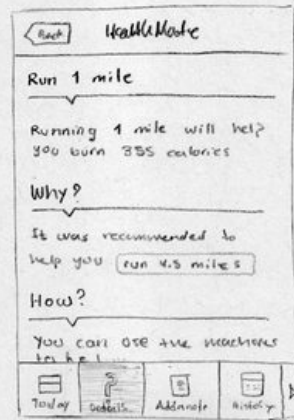 Back
HealthMate
Run 1 mile
Running 1 mile will help
you burn 355 calories
Why?
It was recommended to
help you run 4.5 miles
How?
You can use the machines
to help
Today
Details
Add note
History